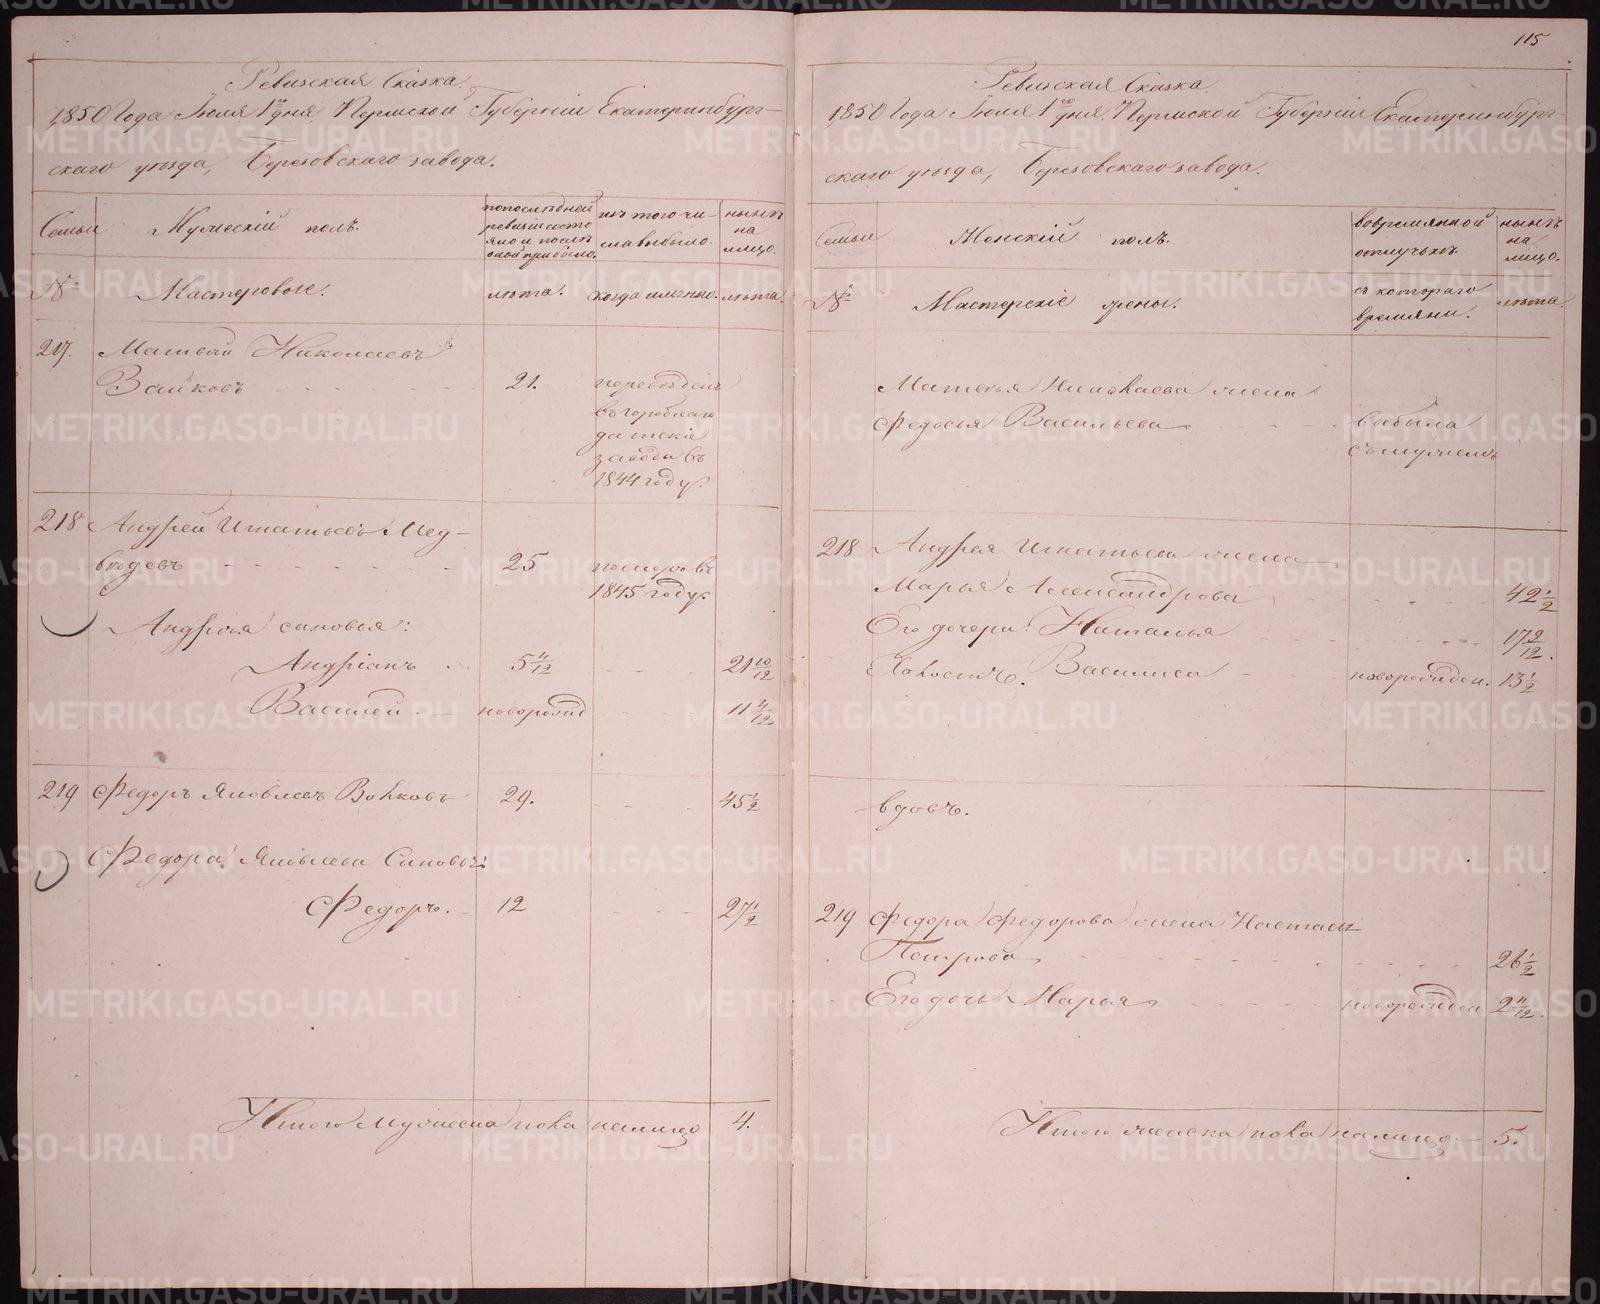 115
Ревизская Сказка.
1850 Года Iюля 1го дня, Пермской Губернiи Екатеринбург-
скаго уѣзда, Березовскаго завода.
Семьи
Мужескiй полъ.
по последней ревизiи состо яло и послѣ оной прибыло.
изъ того чи- сла выбыло.
нынѣ на лицо.
№
Мастеровые.
лѣта.
когда именно.
лѣта.
217.
Матвѣй Николаевъ
Зайковъ
21.
переведенъ
въ
заводы въ
1844 году.
218
Андрей Игнатьевъ Мед-
вѣдевъ
25
померъ въ
1845 году.
Андрея сыновья:
Андрiанъ
5 4/12
21 10/12
Василей
новорожд
11 4/12
219
Федоръ Яковлевъ Волковъ
29.
45 1/2
Федора Яковлева Сыновья:
Федоръ.
12
27 1/2
Итого мужеска пола налицо
4.
Ревизская Сказка.
1850 Года Iюля 1го дня, Пермской Губернiи Екатеринбург-
скаго уѣзда, Березовскаго завода.
Семьи
Женскiй полъ.
во временной отлучкѣ.
нынѣ на лицо.
№
Мастерскiе жены.
съ котораго времяни.
лѣта.
Матвѣя Николаева жена
Федосья Васильева
выбыла
съ мужемъ
218
Андрея Игнатьева жена
Марья Александрова
42 1/2
Его дочери: Наталья
17 9/12
Василиса
новорожден.
13 1/2
вдовъ.
219
Федора Федорова жена Настасья
Петрова
26 1/2
Его дочь Марья
новорожден
2 11/12.
Итого женска пола налицо
5.
METRIKI.GASO-URAL.RU